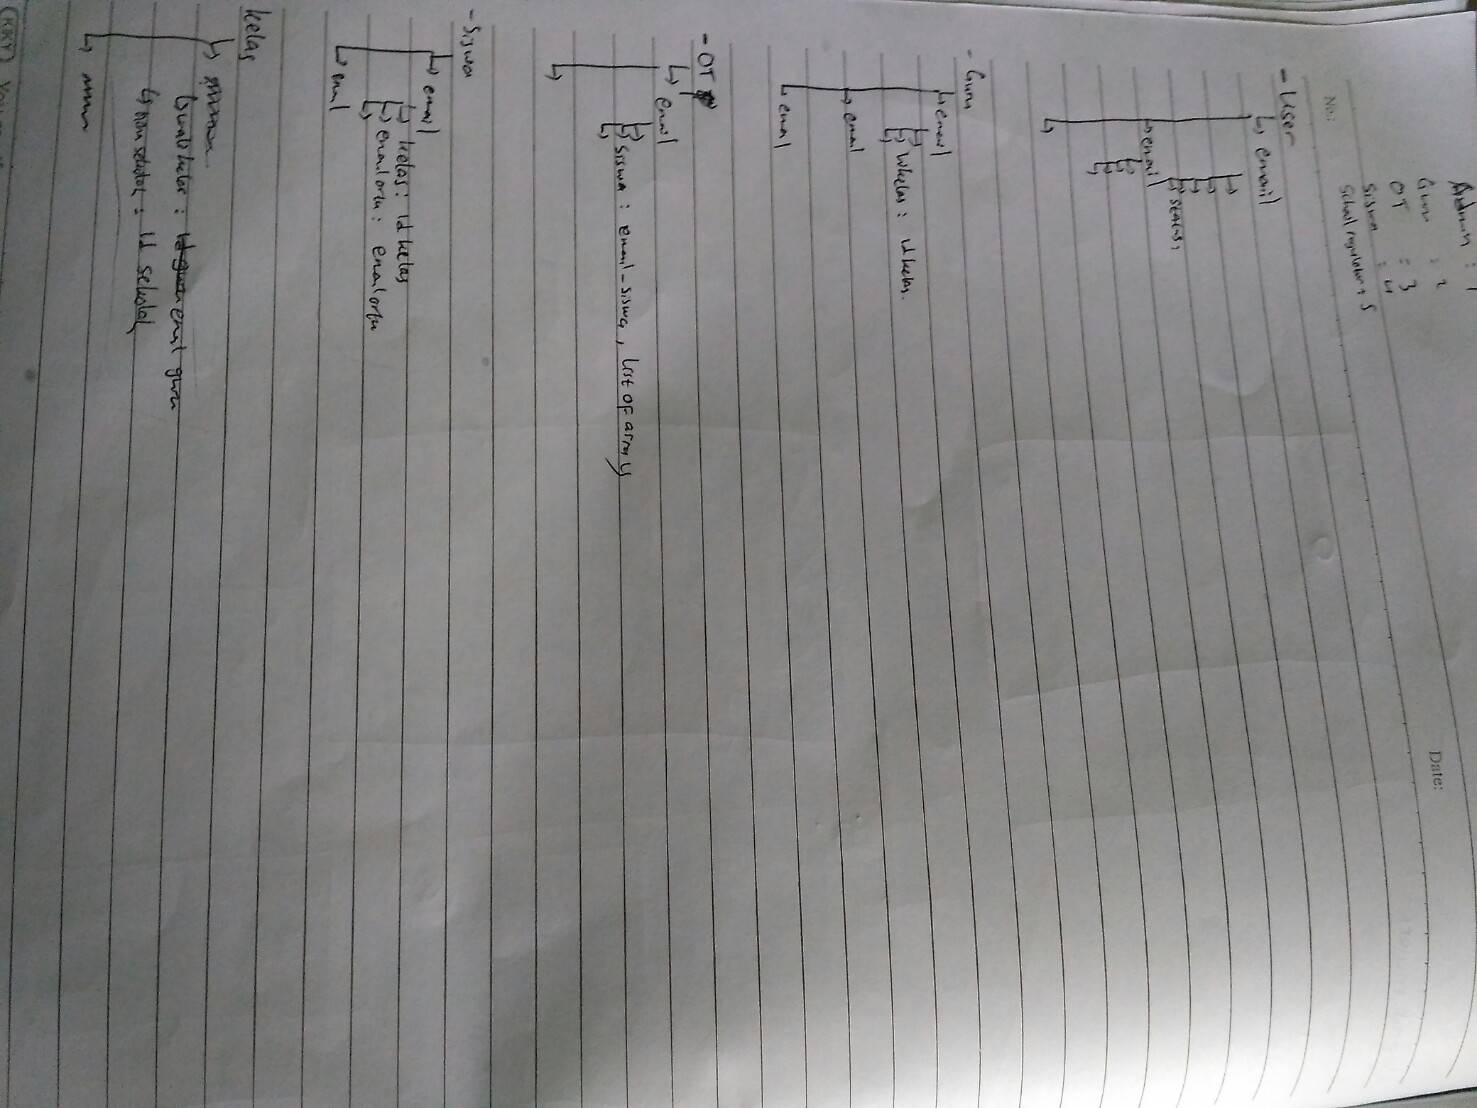 Admin : 1
Guru : 2
OT : 3
Siswa : 4
School regulator : 5
Date:
No.:
- User
email
status,
email
- Guru
email
Wkelas : id kelas.
email
email
- OT
email
siswa : email-siswa, list of array
- Siswa
email
kelas : id kelas
email ortu : email ortu
email
kelas
wali kelas : id guru email guru
nam sekolah : id sekolah
KKY